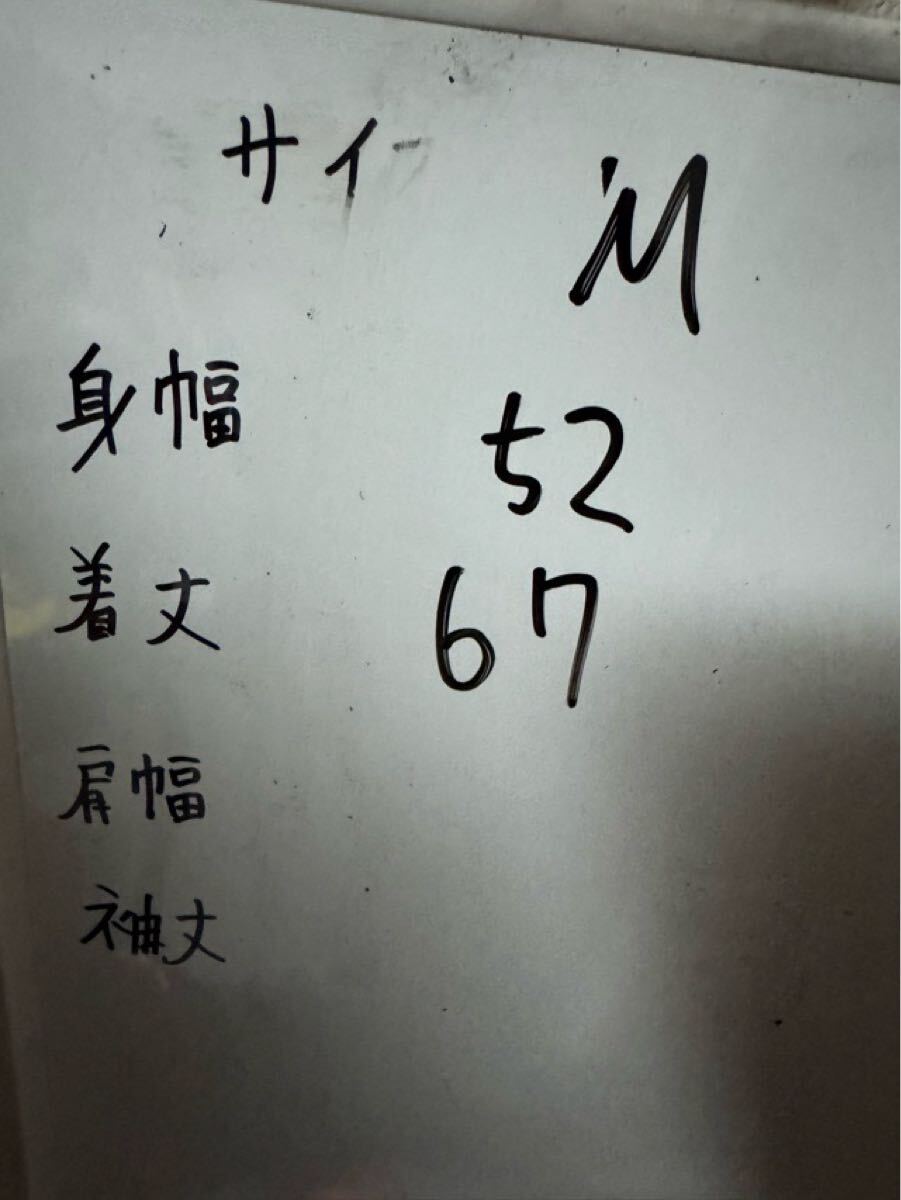 サイ M
身幅 52
着丈 67
肩幅
袖丈